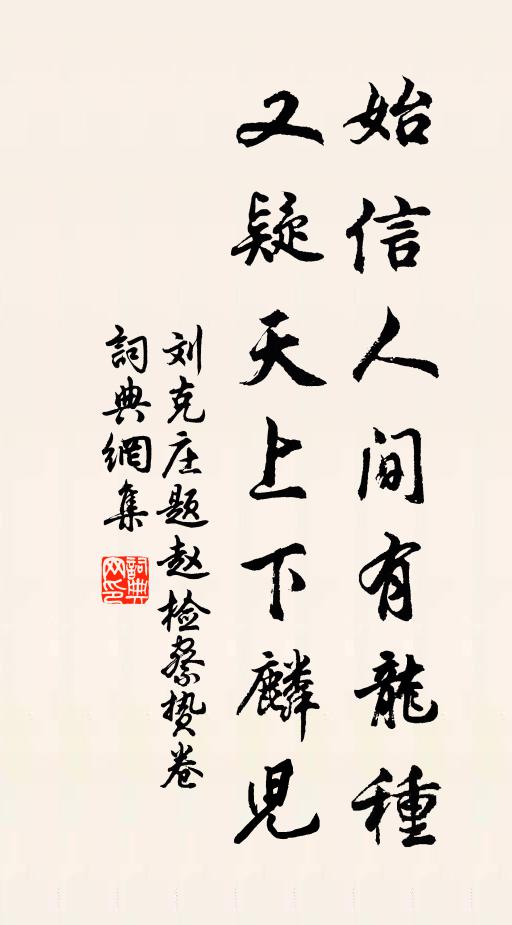 始信人间有龍種
又疑天上下麟児
刘克庄题赵检察贽卷
詞典網集
詞典网印